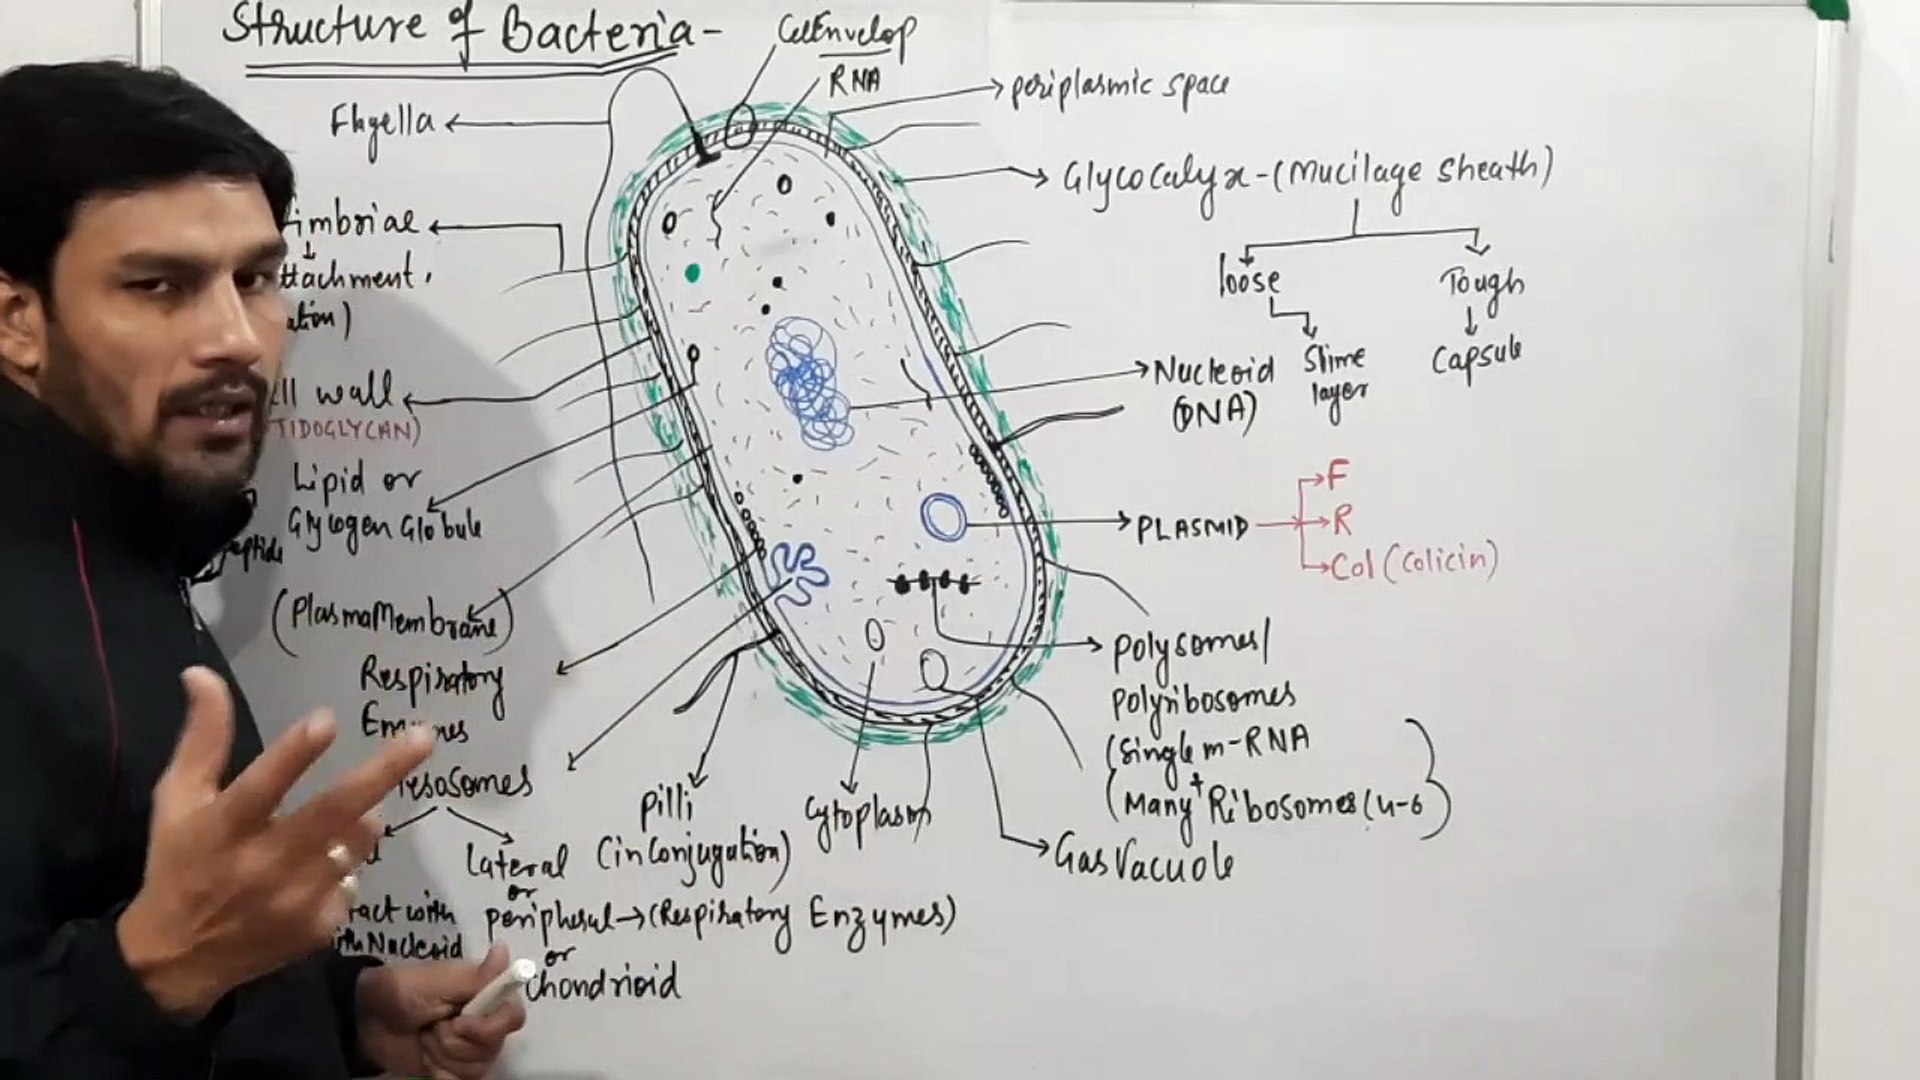 Structure of Bacteria -
CellEnvelop
RNA
periplasmic space
Flagella
Glycocalyx-(Mucilage Sheath)
imbriae
ttachment,
ation)
loose
Tough
Slime
layer
Capsule
ll wall
TIDOGLYCAN)
Nucleoid
(DNA)
Lipid or
Glycogen Globule
peptide
F
R
Col (Colicin)
PLASMID
(PlasmaMembrane)
Respiratory
polysomes/
polyribosomes
(Single m-RNA
+
(Many Ribosomes (4-6)
esosomes
Pilli
(in Conjugation)
Cytoplasm
Gas Vacuole
Lateral
or
peripheral→(Respiratory Enzymes)
or
Chondrioid
ract with
with Nucleoid